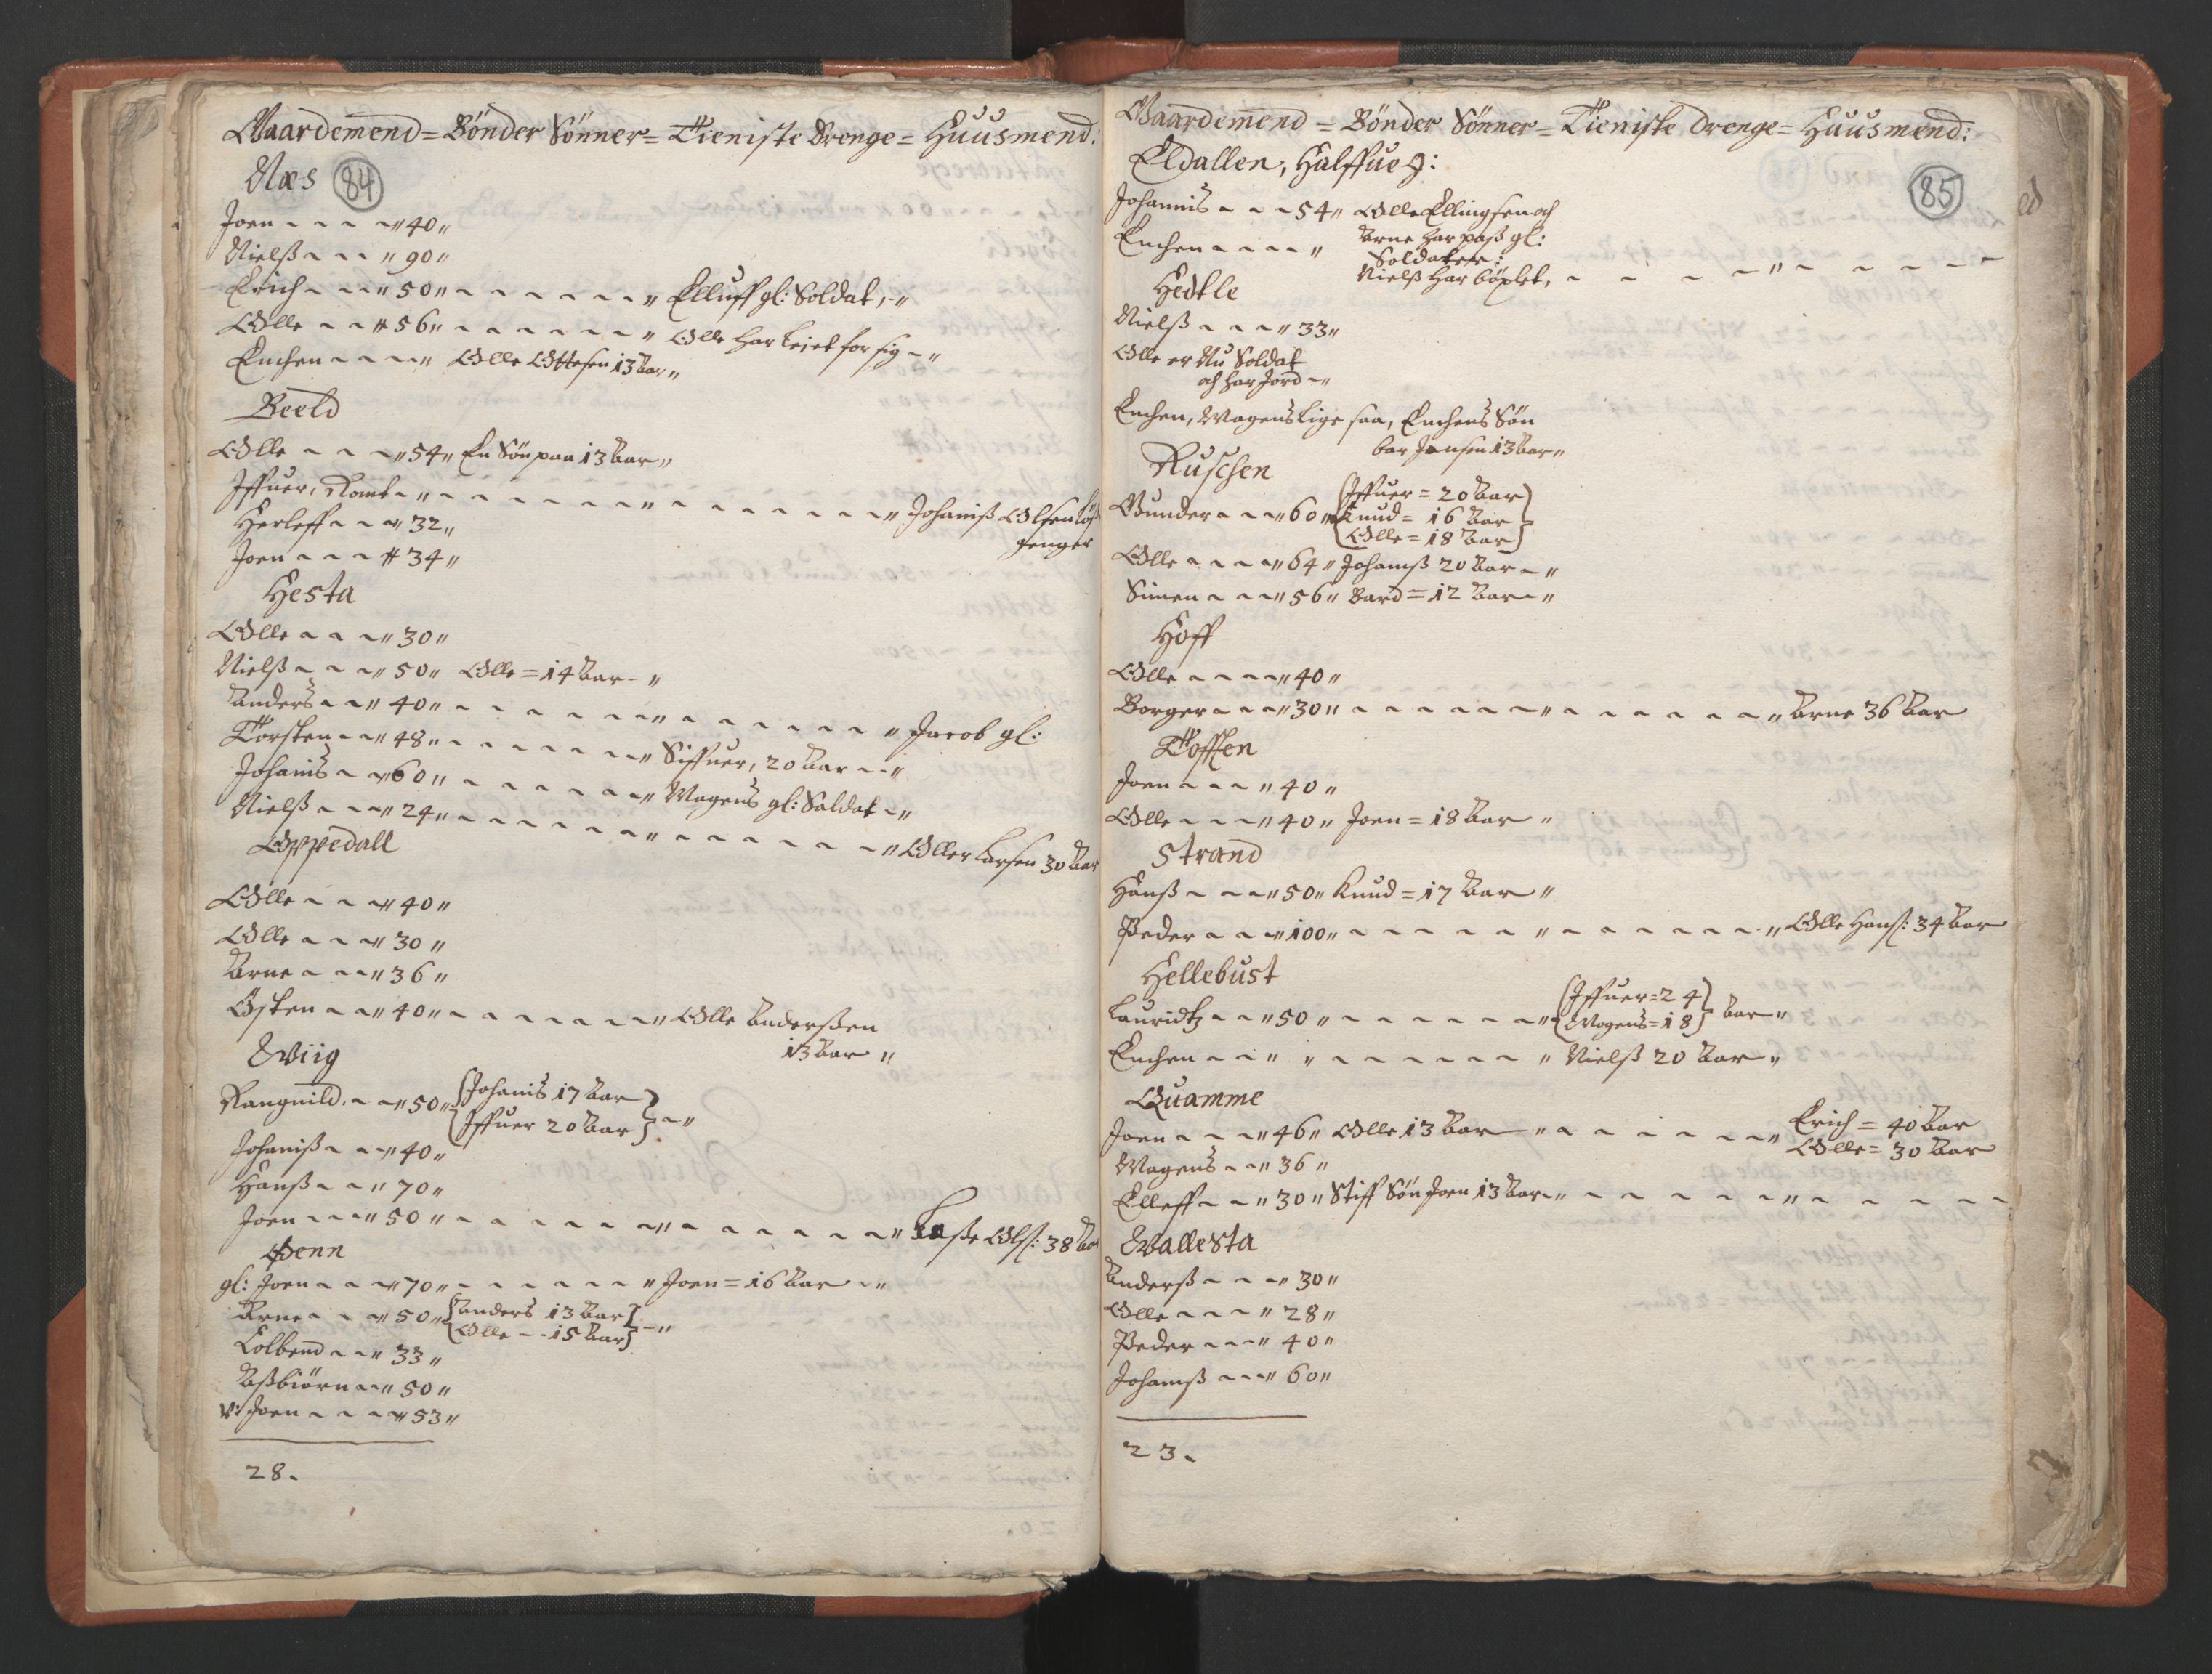 Gaardemend = Bönder Sönner = Tieniste Drenge = Huusmend:
Næs 84
Joen - - - - " 40 "
Nielß - - - " 90 "
Erich - - - " 50 " - - - - - - - " Elluff gl: Soldat, - "
Olle - - " 56 " - - - - - - - " Olle har leiet for sig - "
Enchen - - - - " Olle Ottesen 13 Aar "
Beeld
Olle - - - " 54 " En Sön paa 13 Aar "
Iffuer, - " - - - - - - - " - - - - - - - " Johaniß Olsen löß
genger
Herleff - - - " 32 "
Joen - - - " 34 "
Hesta
Olle - - - " 30 "
Nielß - - - " 50 " Olle = 14 Aar - "
Anders - - " 40 " - - - - - - - " - - - - - - " Jacob gl:
Torsten - - " 48 " - - - - - - - " Siffuer, 20 Aar - - "
Johanis - - " 60 " - - - - - - - " Mogens gl: Soldat - "
Nielß - - - " 24 " - - - - - - - " - - - - - - " Oller Larsen 30 Aar
Oppedall
Olle - - - " 40 "
Olle - - - " 30 "
Arne - - - " 36 "
Östen - - - " 40 " - - - - - - - " Olle Anderßen
13 Aar "
Wiig
Rangnild. - - " 50 " {Johanis 17 Aar
{Iffuer 20 Aar} - "
Johaniß - - - " 40 "
Hanß - - - " 70 "
Joen - - - " 50 " - - - - - - - " - - - - - - " Laße Ols: 38 Aar
Öenn
gl: Joen - - - " 70 " - - - - - - - " Joen = 16 Aar - - "
Arne - - - " 50 " {Anders 13 Aar}
{Olle - - 15 Aar} - "
Kolbend - - " 33 "
Aßbiörn - - " 50 "
v: Joen - - - " 53 "
28.
Gaardemend = Bönder Sönner = Tieniste Drenge = Huusmend:
Eldallen, Halffue g: 85
Johannis - - - 54 " Olle Ellingsen och
Arne har paß gl:
Soldater:
Enchen - - - - "
Nielß har böxlet, - - - - " - - - - -
Hedtle
Nielß - - - " 33 "
Olle er Nu Soldat
och har Jord - "
Enchen, Mogens lige saa, Enchens Sön
Jensen 13 Aar "
Ruschen
Gunder - - - " 60 " {Iffuer = 20 Aar}
{Knud = 16 Aar}
{Olle = 18 Aar}
Olle - - - - " 64 " Johanniß 20 Aar - "
Simen - - - " 56 " Bard = 12 Aar - "
Hoff
Olle - - - - " 40 "
Borger - - - " 30 " - - - - - - - " - - - - - - " Arne 36 Aar
Toffen
Joen - - - " 40 "
Olle - - - " 40 " Joen = 18 Aar "
Strand
Hanß - - - " 50 " Knud = 17 Aar "
Peder - - - " 100 " - - - - - " - - - - - - - " Olle Hans: 34 Aar
Hellebust
Lauridtz - - " 50 " - - - - - - - " {Iffuer = 24}
{Mogens = 18} Aar "
Enchen - - " " - - - - - - - " Nielß 20 Aar "
Quamme
Joen - - - " 46 " Olle 13 Aar - " - - - - - - " Erich = 40 Aar
Olle = 30 Aar
Mogens - - " 36 "
Elleff - - " 30 " Stiff Sön Joen 13 Aar - " - - - - - - " - - - - -
Wallesta
Anderß - - - " 30 "
Olle - - - " 28 "
Peder - - - " 40 "
Johanniß - - - " 60 "
23.